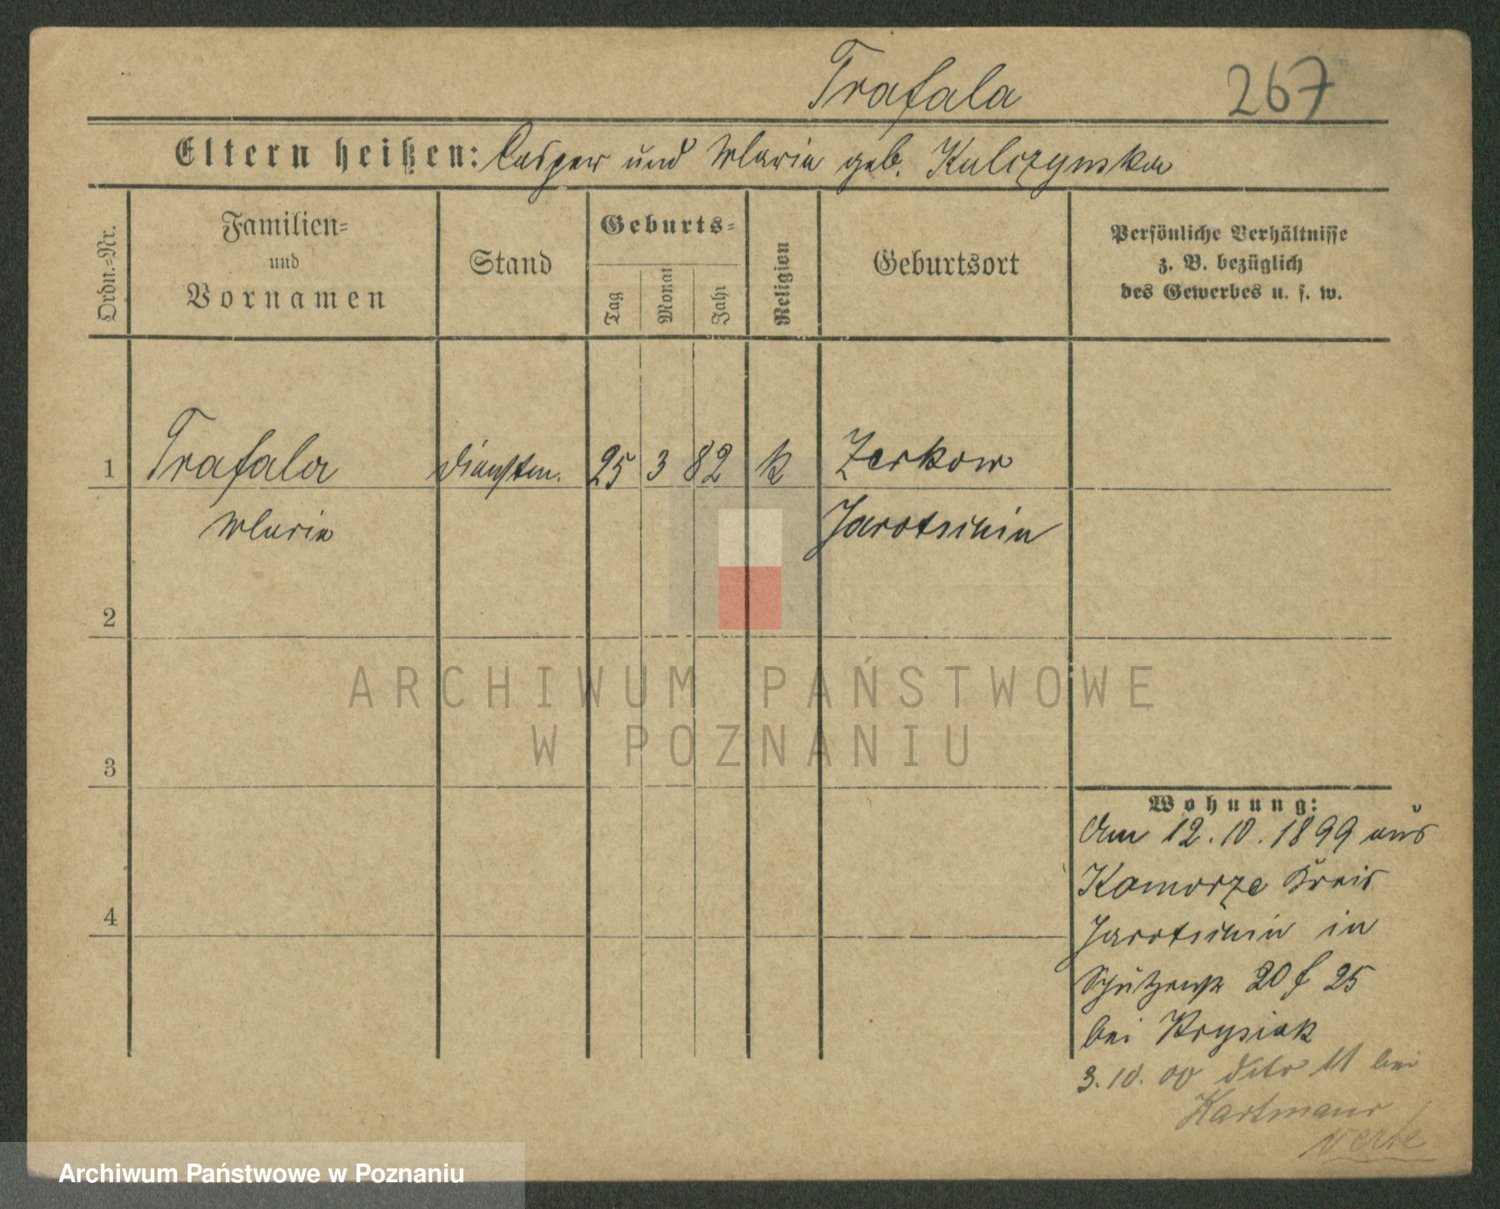 Trafala 267
Eltern heißen: Casper und Maria geb. Kulczynska
Ordn.-Nr.
Familien-
und
Vornamen
Stand
Geburts-
Tag
Monat
Jahr
Religion
Geburtsort
Persönliche Verhältnisse
z. B. bezüglich
des Gewerbes u. s. w.
1 Trafala Dienstm. 25 3 82 k Zerkow
Maria Jarotschin
2
ARCHIWUM PAŃSTWOWE
W POZNANIU
3
Wohnung:
Am 12.10.1899 aus
Komorze Kreis
4
Jarotschin in
Schützenstr 20 f 25
bei Krysiak
3.10.00 dito 11 bei
Hartmann
verte
Archiwum Państwowe w Poznaniu